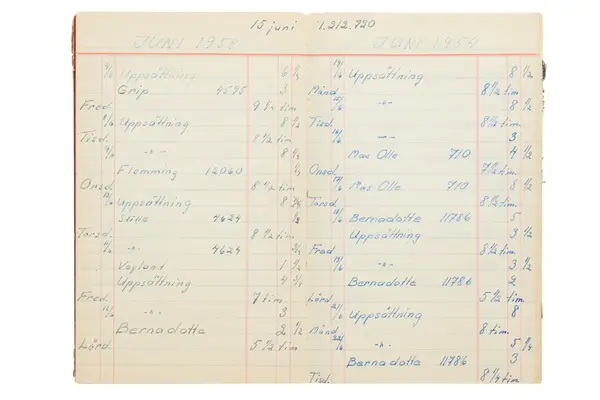 15 juni 1.212.720
JUNI 1959
6/6 Uppsättning 6 1/2
Grip 4595 3
Fred. 9 1/2 tim
8/6 Uppsättning 8 1/2
Tisd. 8 1/2 tim
9/6 -"- 8
Flemming 12060 1/2
Onsd. 8 1/2 tim
10/6 Uppsättning 8
Stille 4624 1/2
Torsd. 8 1/2 tim
-"- 4624
Voylont 1 1/2
Uppsättning 4
Fred. 7 tim
12/6 -"- 3
Bernadotte 2 1/2
Lörd. 5 1/2 tim
JUNI 1959
14/6 Uppsättning 8 1/2
Månd. 8 1/2 tim
15/6 -"- 8 1/2
Tisd. 8 1/2 tim
16/6 -"- 3
Mas Olle 710 4 1/2
Onsd. 7 1/2 tim
17/6 Mas Olle 710 8 1/2
Torsd. 8 1/2 tim
18/6 Bernadotte 11786 5
Uppsättning 3 1/2
Fred 8 1/2 tim
19/6 -"- 3 1/2
Bernadotte 11786 2
Lörd. 5 1/2 tim
21/6 Uppsättning 8
Månd 8 tim
22/6 -"- 5 1/4
Bernadotte 11786 3
Tisd. 8 1/4 tim